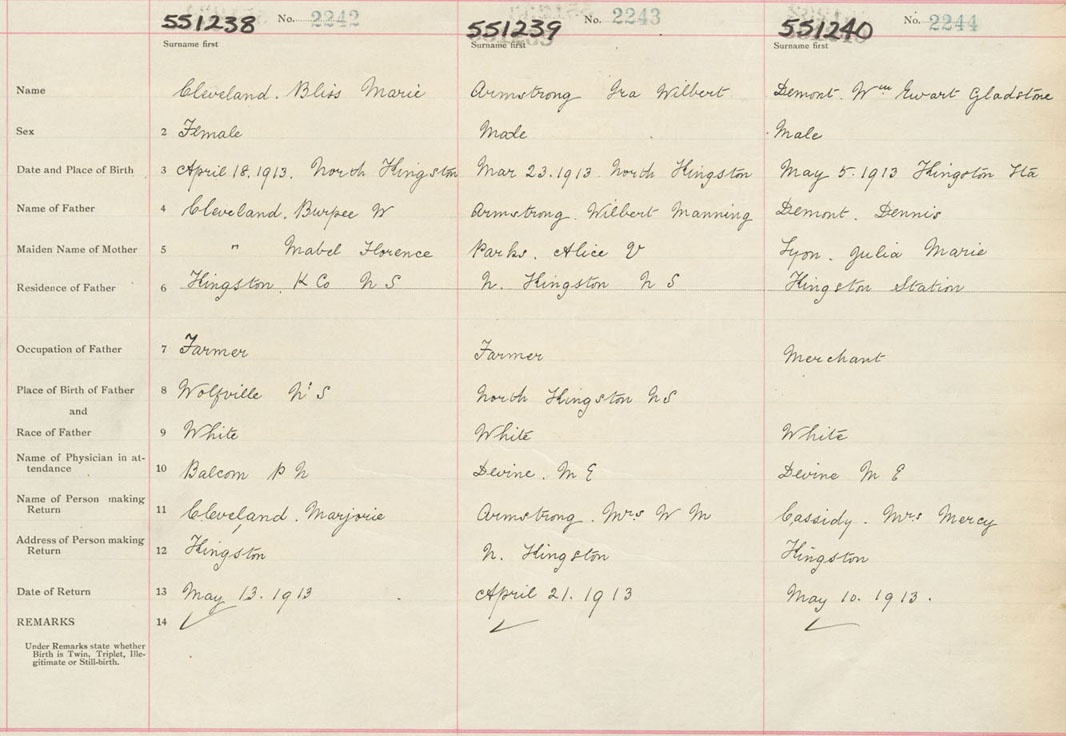 551238 No. 2242 551239 No. 2243 551240 No. 2244
Surname first Surname first Surname first
Name Cleveland. Bliss Marie Armstrong Ira Wilbert Demont. Wm Ewart Gladstone
Sex 2 Female Male Male
Date and Place of Birth 3 April 18.1913. North Kingston Mar 23.1913. North Kingston May 5.1913 Kingston Sta
Name of Father 4 Cleveland. Burpee W Armstrong. Wilbert Manning Demont. Dennis
Maiden Name of Mother 5 " Mabel Florence Parks. Alice V Lyon. Julia Marie
Residence of Father 6 Kingston K Co N S N. Kingston N S Kingston Station
Occupation of Father 7 Farmer Farmer Merchant
Place of Birth of Father 8 Wolfville N S North Kingston NS
and
Race of Father 9 White White White
Name of Physician in at-
tendance 10 Balcom P N Devine. M E Devine M E
Name of Person making
Return 11 Cleveland. Marjorie Armstrong. Mrs W M Cassidy. Mrs Mercy
Address of Person making
Return 12 Kingston N. Kingston Kingston
Date of Return 13 May 13.1913 April 21.1913 May 10.1913.
REMARKS 14 ✓ ✓ ✓
Under Remarks state whether
Birth is Twin, Triplet, Ille-
gitimate or Still-birth.